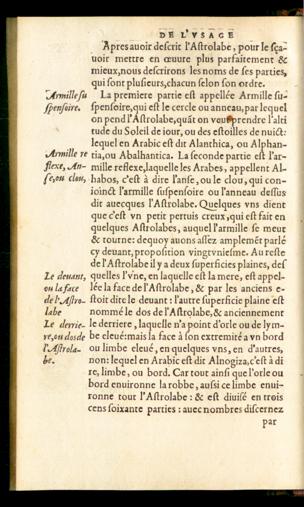 DE L'VSAGE
Apres auoir descrit l'Astrolabe, pour le sça-
uoir mettre en œuure plus parfaitement &
mieux, nous descrirons les noms de ses parties,
qui sont plusieurs, chacun selon son ordre.
Armille su
spensoire.
La premiere partie est appellée Armille su-
spensoire, qui est le cercle ou anneau, par lequel
on pend l'Astrolabe, quãt on veut prendre l'alti
tude du Soleil de iour, ou des estoilles de nuict:
lequel en Arabic est dit Alanthica, ou Alphan-
tia, ou Abalhantica. La seconde partie est l'ar-
Armille re
flexe, An-
se, ou clou,
mille reflexe, laquelle les Arabes, appellent Al-
habos, c'est à dire l'anse, ou le clou, qui con-
ioinct l'armille suspensoire ou l'anneau dessus
dit auecques l'Astrolabe. Quelques vns dient
que c'est vn petit pertuis creux, qui est fait en
quelques Astrolabes, auquel l'armille se meut
& tourne: dequoy auons assez amplemẽt parlé
cy deuant, proposition vingtvniesme. Au reste
de l'Astrolabe il y a deux superficies plaines, des
Le deuant,
ou la face
de l'Astro-
labe
quelles l'vne, en laquelle est la mere, est appel-
lée la face de l'Astrolabe, & par les anciens e-
stoit dite le deuant: l'autre superficie plaine est
nommé le dos de l'Astrolabe, & anciennement
Le derrie-
re, ou dos de
l'Astrola-
be.
le derriere, laquelle n'a point d'orle ou de lym-
be eleué: mais la face à son extremité a vn bord
ou limbe eleué, en quelques vns, en d'autres,
non: lequel en Arabic est dit Alnogiza, c'est à di
re, limbe, ou bord. Car tout ainsi que l'orle ou
bord enuironne la robbe, aussi ce limbe enui-
ronne tout l'Astrolabe: & est diuisé en trois
cens soixante parties: auec nombres discernez
par